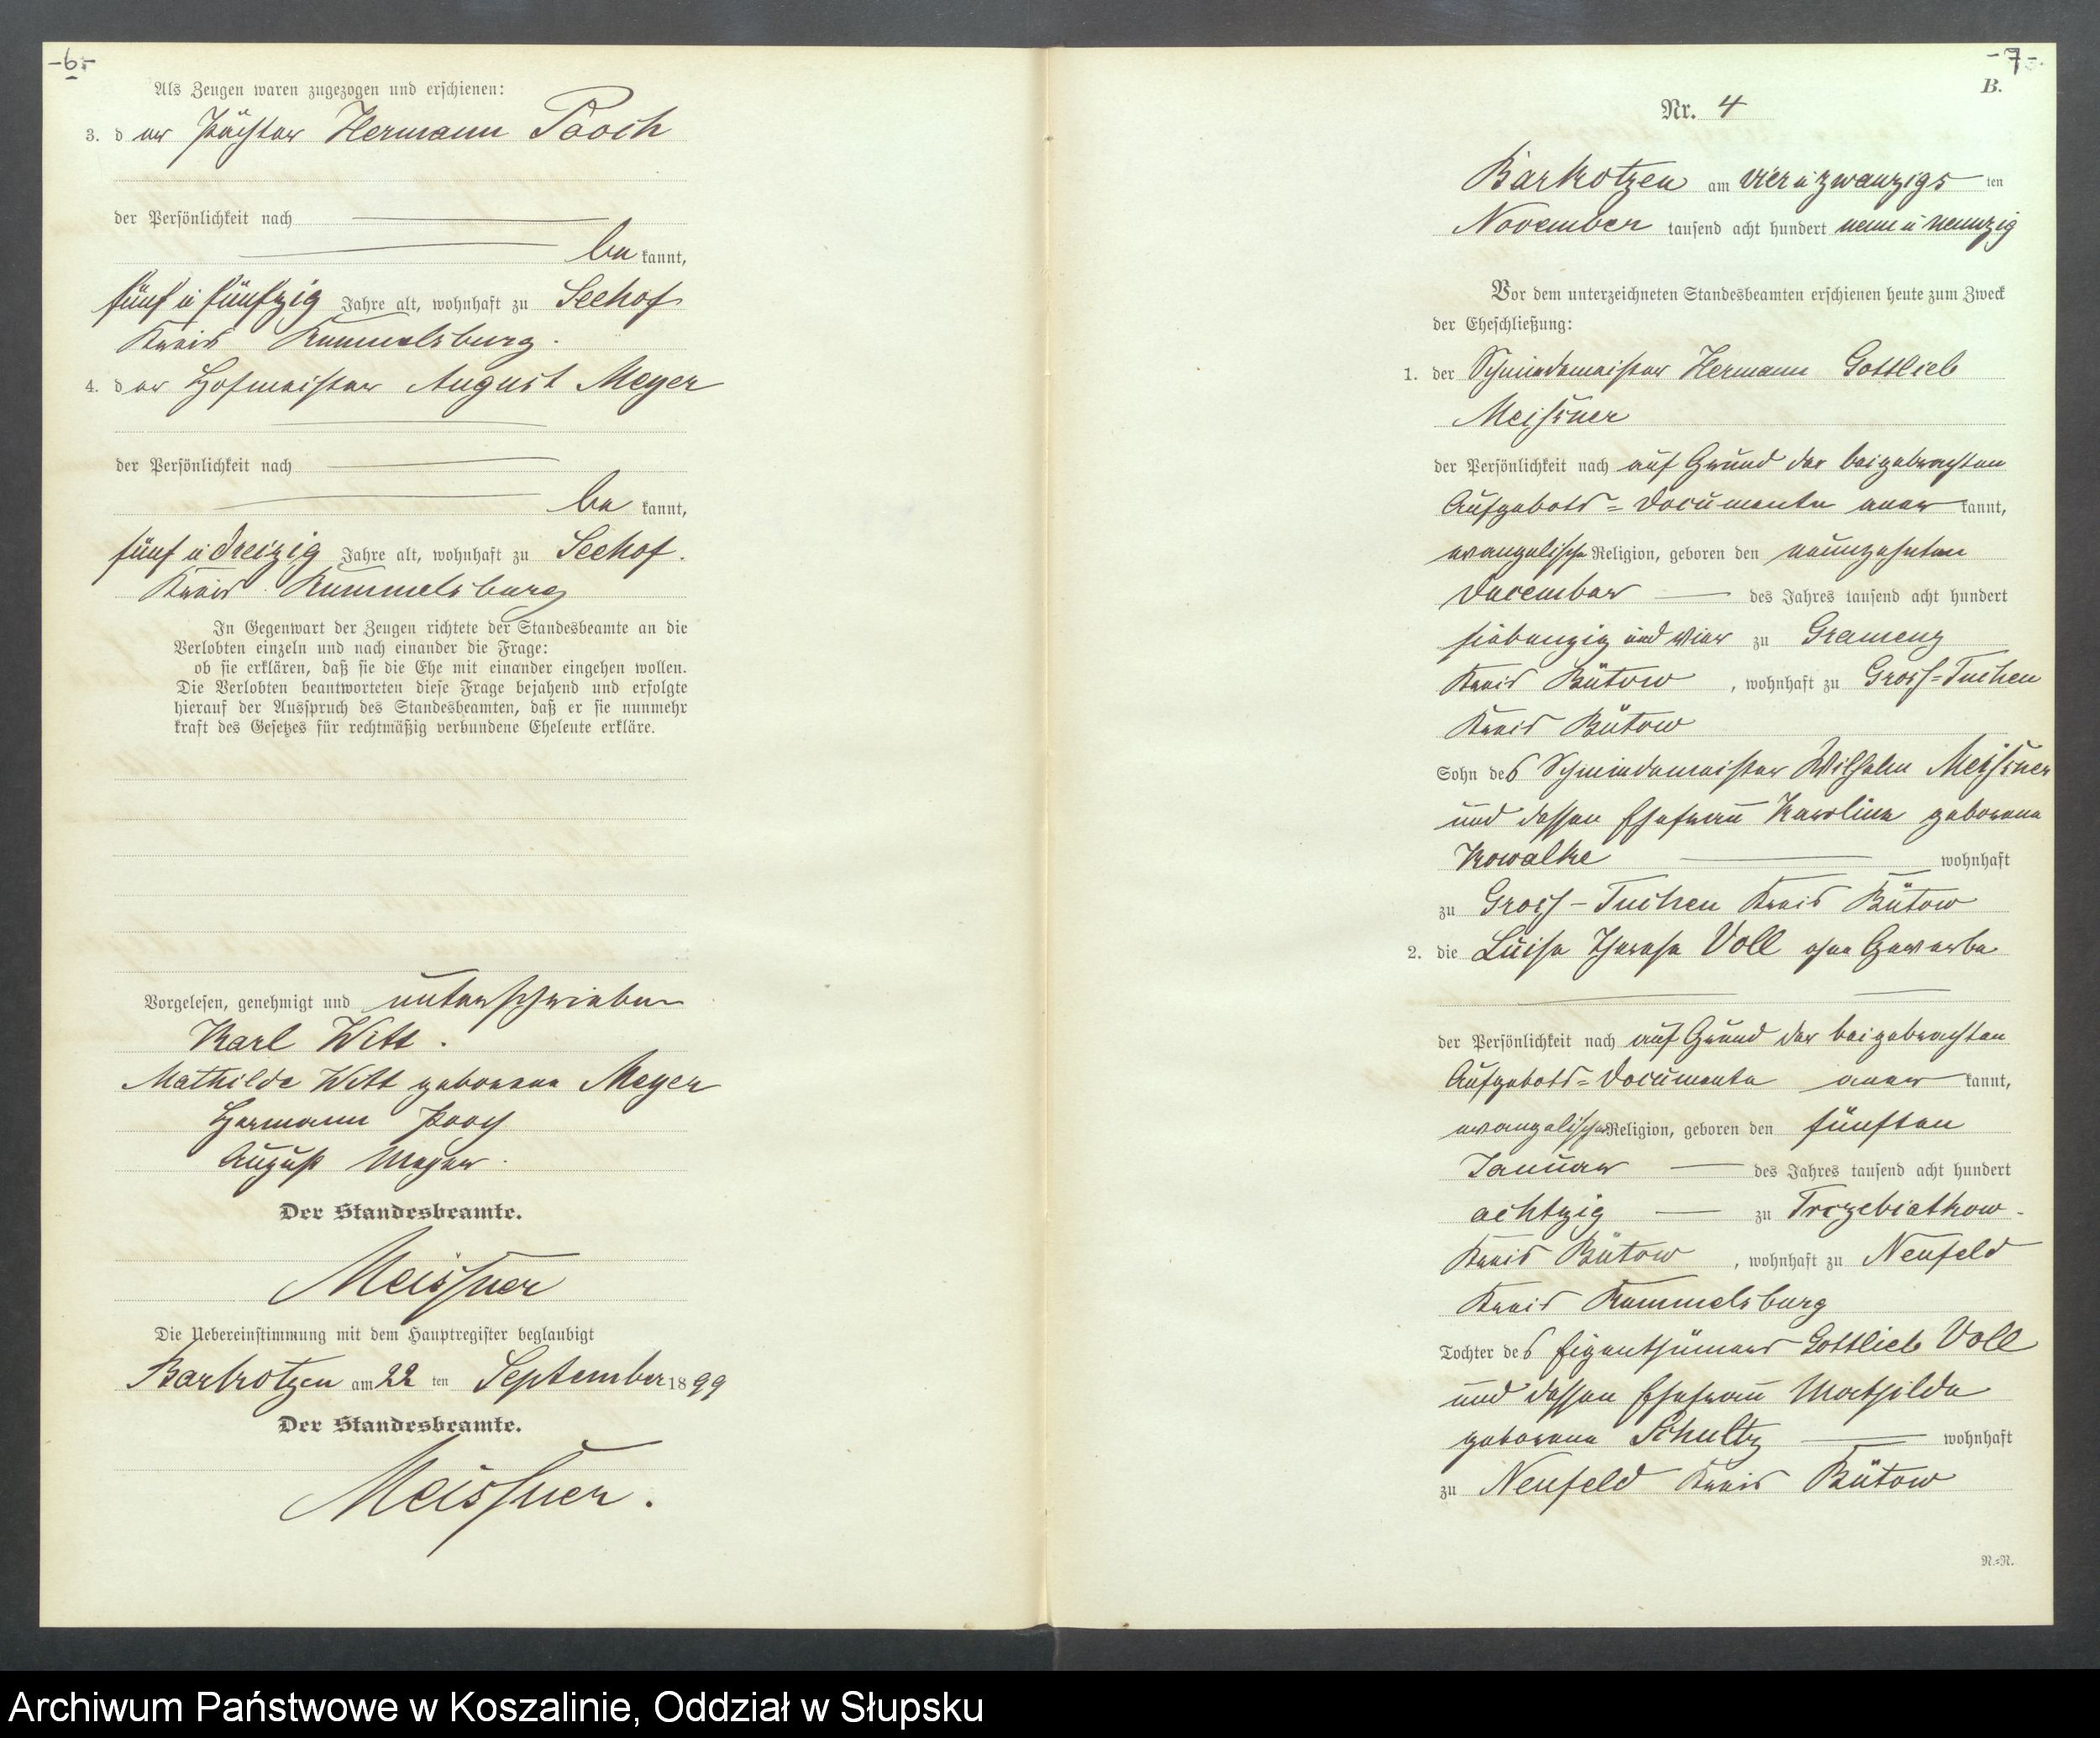 -6-
Als Zeugen waren zugezogen und erschienen:
3. der Pächter Hermann Pooch
der Persönlichkeit nach
be kannt,
fünf u fünfzig Jahre alt, wohnhaft zu Seehof
Kreis Rummelsburg.
4. der Hofmeister August Meyer
der Persönlichkeit nach
be kannt,
fünf u dreizig Jahre alt, wohnhaft zu Seehof.
Kreis Rummelsburg
In Gegenwart der Zeugen richtete der Standesbeamte an die
Verlobten einzeln und nach einander die Frage:
ob sie erklären, daß sie die Ehe mit einander eingehen wollen.
Die Verlobten beantworteten diese Frage bejahend und erfolgte
hierauf der Ausspruch des Standesbeamten, daß er sie nunmehr
kraft des Gesetzes für rechtmäßig verbundene Eheleute erkläre.
Vorgelesen, genehmigt und unterschrieben
Karl Witt.
Mathilde Witt geborene Meyer
Hermann Pooch
August Meyer.
Der Standesbeamte.
Meissner
Die Uebereinstimmung mit dem Hauptregister beglaubigt
Barkotzen am 22 ten September 1899
Der Standesbeamte.
Meissner.
-7-
B.
Nr. 4
Barkotzen am vier u zwanzigs ten
November tausend acht hundert neun u neunzig
Vor dem unterzeichneten Standesbeamten erschienen heute zum Zweck
der Eheschließung:
1. der Schmiedemeister Hermann Gottlieb
Meissner
der Persönlichkeit nach auf Grund der beigebrachten
Aufgebots=Documente aner kannt,
evangelischer Religion, geboren den neunzehnten
December des Jahres tausend acht hundert
siebenzig und vier zu Gramenz
Kreis Bütow, wohnhaft zu Gross=Tuchen
Kreis Bütow
Sohn des Schmiedemeister Wilhelm Meissner
und dessen Ehefrau Karoline geborene
Kowalke wohnhaft
zu Gross-Tuchen Kreis Bütow
2. die Luise Therese Voll ohne Gewerbe
der Persönlichkeit nach auf Grund der beigebrachten
Aufgebots=Documente aner kannt,
evangelischer Religion, geboren den fünften
Januar des Jahres tausend acht hundert
achtzig zu Trzebiatkow.
Kreis Bütow, wohnhaft zu Neufeld
Kreis Rummelsburg
Tochter des Eigenthümers Gottlieb Voll
und dessen Ehefrau Mathilde
geborene Schultz wohnhaft
zu Neufeld Kreis Bütow
N.=N.
Archiwum Państwowe w Koszalinie, Oddział w Słupsku